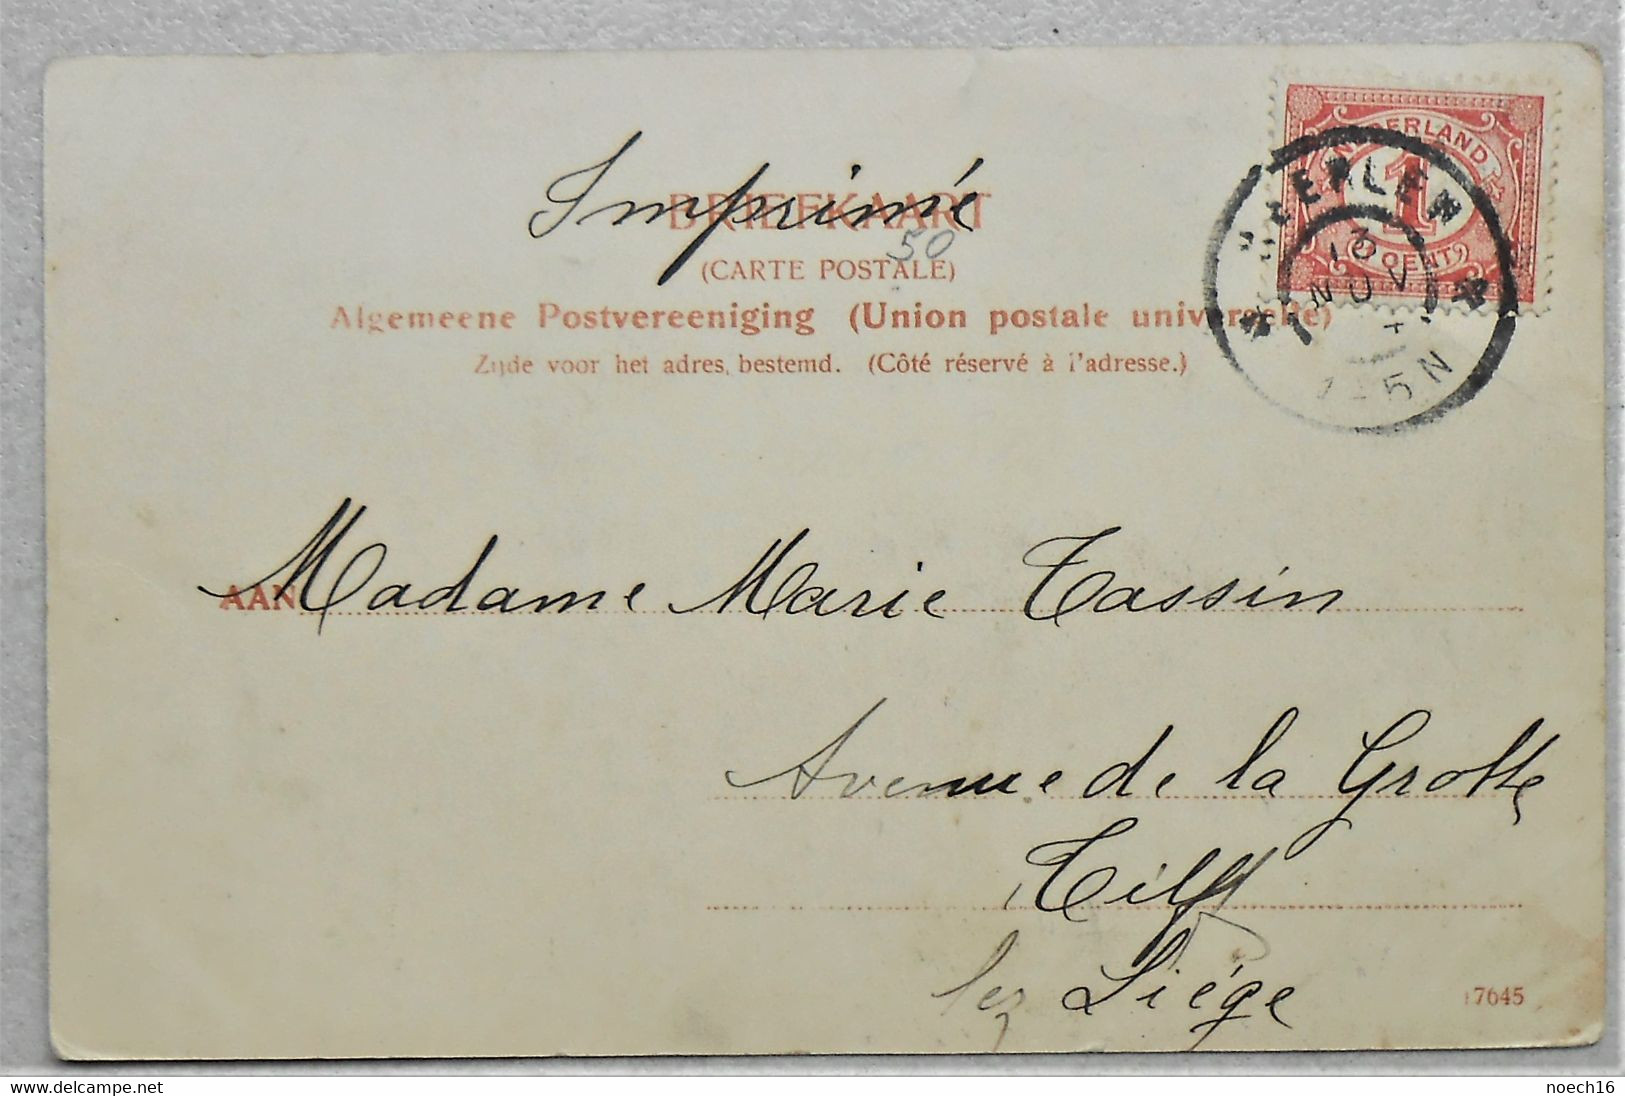 Imprimé
BRIEFKAART
50
(CARTE POSTALE)
Algemeene Postvereeniging (Union postale universelle)
Zijde voor het adres bestemd. (Côté réservé à l'adresse.)
NEDERLAND
1
CENT
HEERLEN
13
NOV
5 N
AAN Madame Marie Tassin
Avenue de la Grotte
Tilff
lez Liége
17645
delcampe.net
noech16